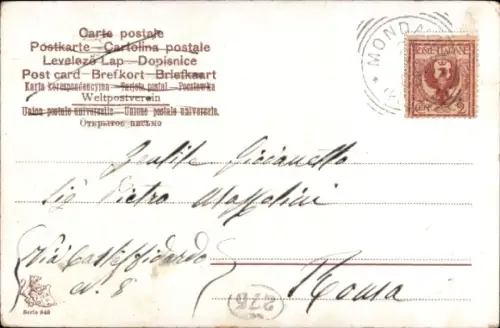 Carte postale
Postkarte – Cartolina postale
Levelező Lap – Dopisnice
Post card – Brefkort – Briefkaart
Karta korespondencyjna – Tarjeta postal – Pocztówka
Weltpostverein
Union postale universelle – Unione postale universale.
Открытое письмо
MONDA
POSTE ITALIANE
Gentile Giovanetto
Sig Pietro
Via Castelfidardo
N. 8
Roma
275
Serie 848